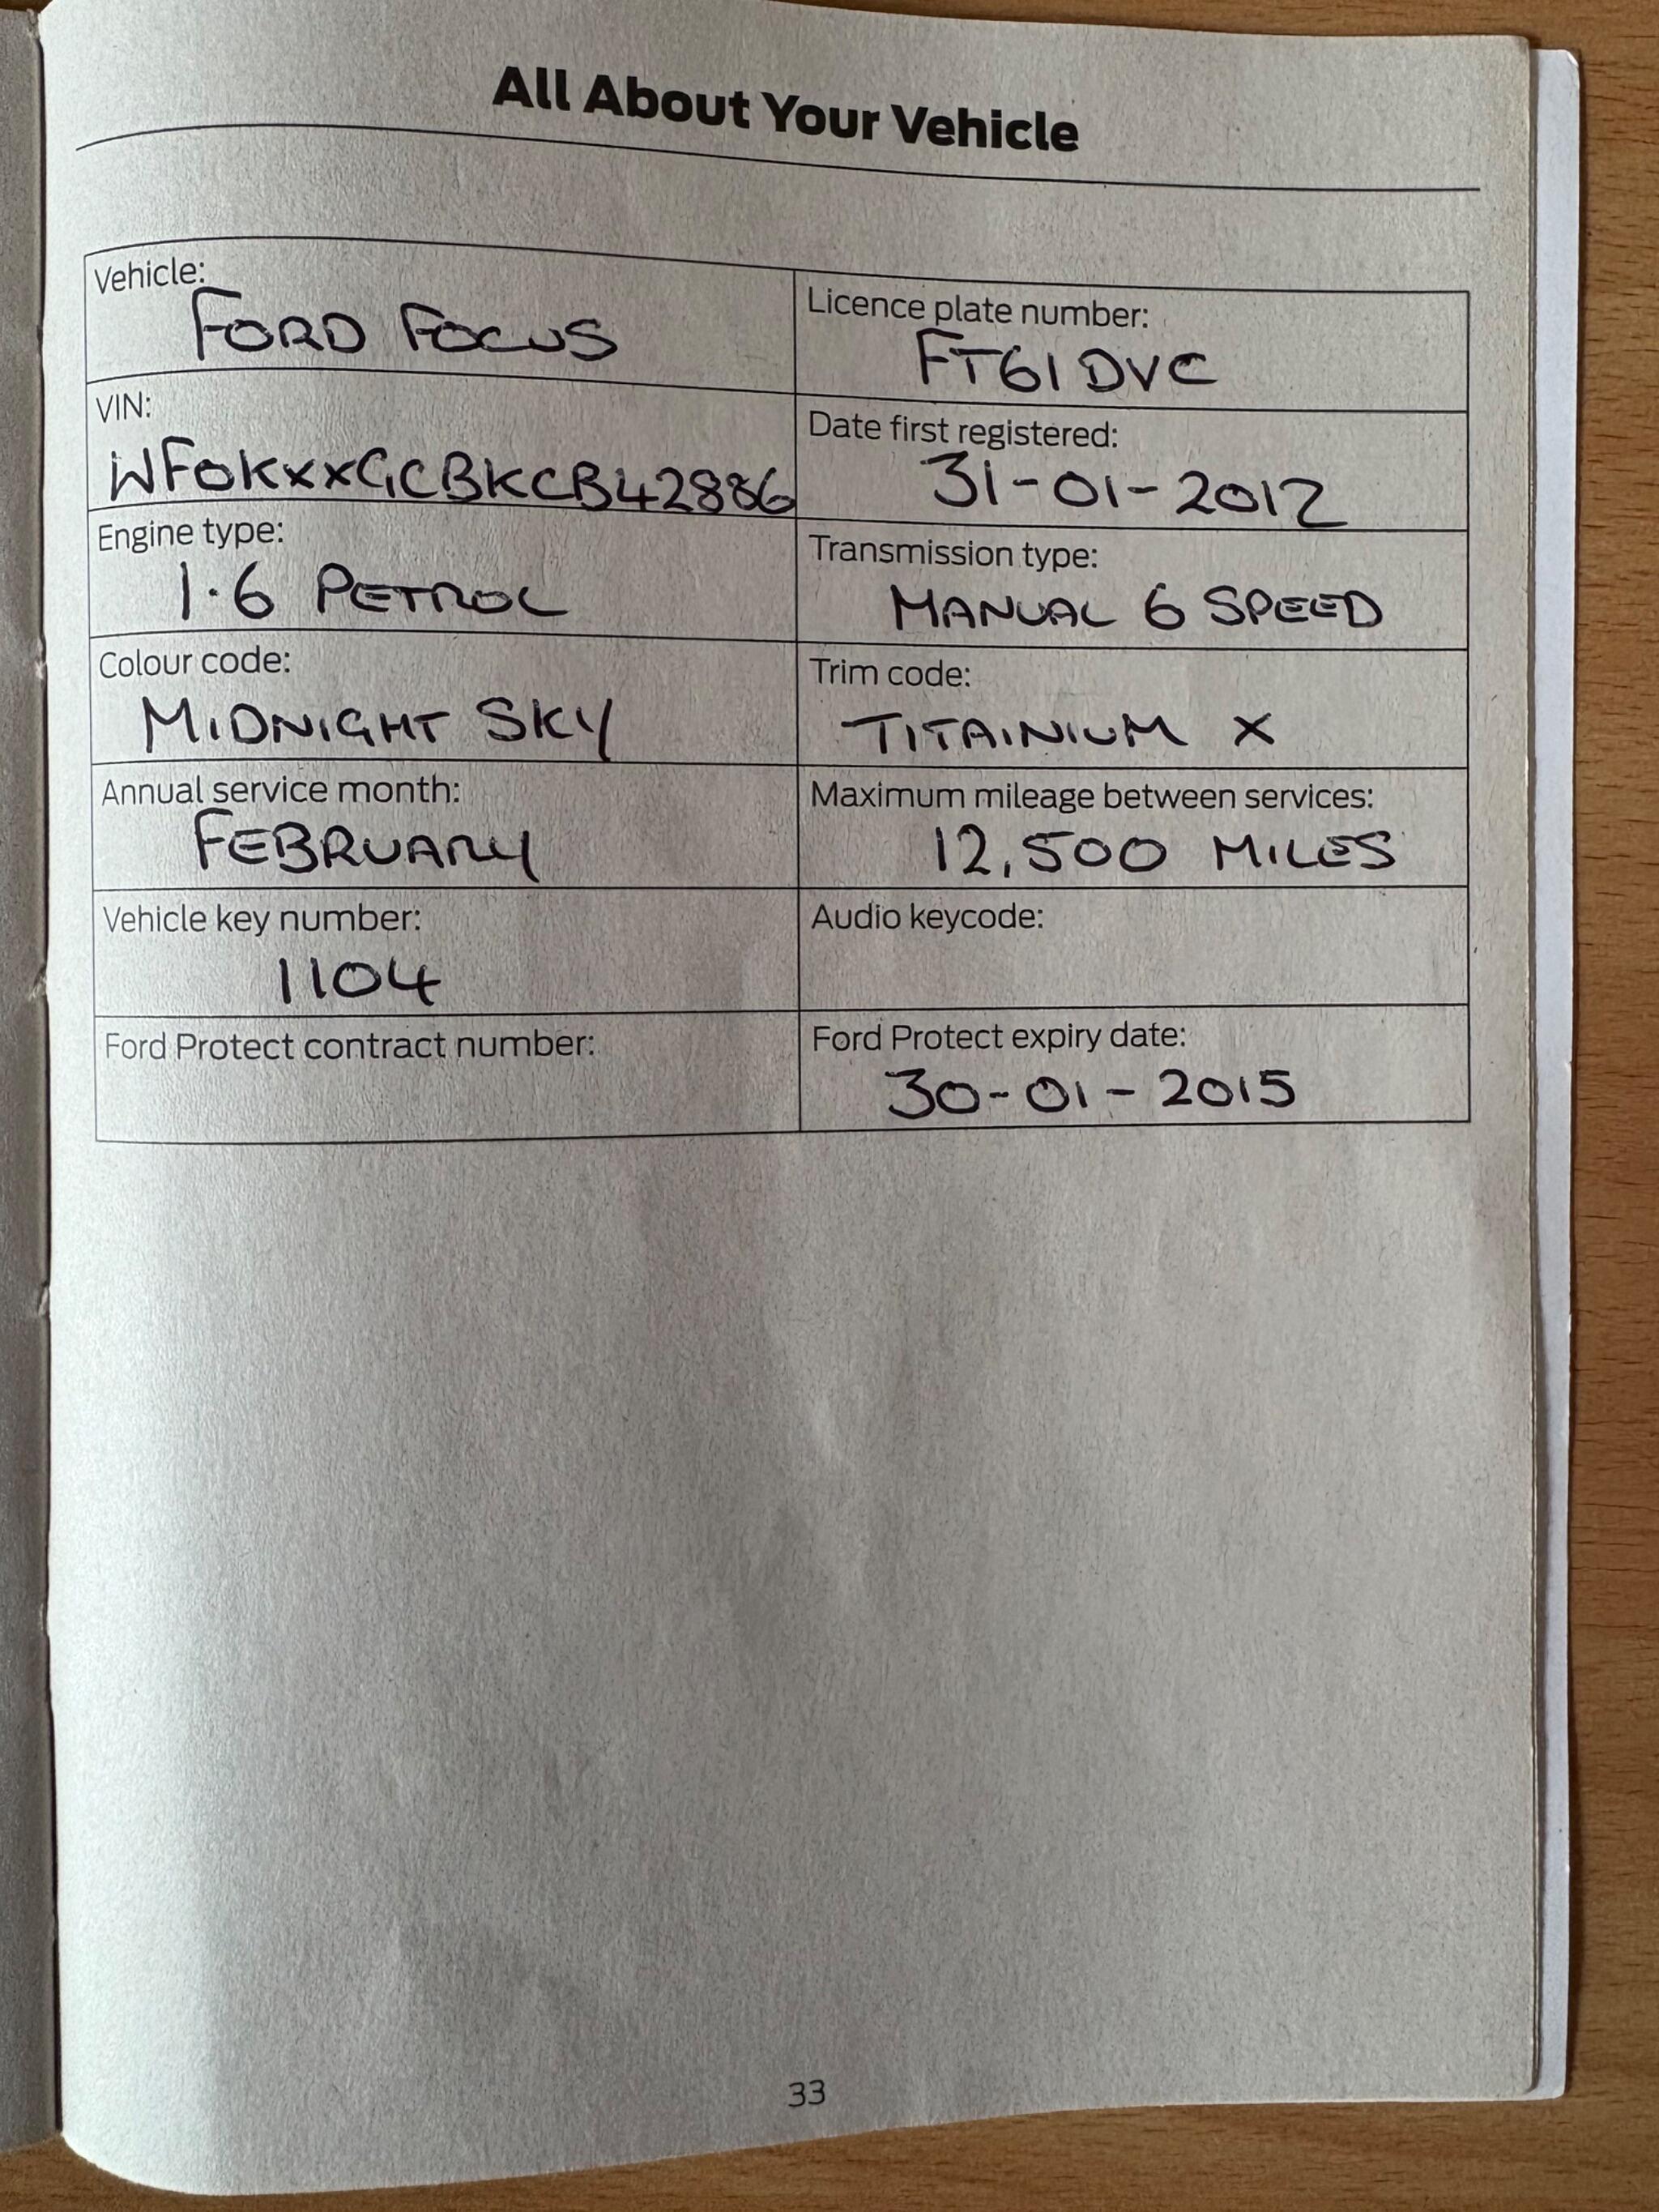 All About Your Vehicle
Vehicle:
FORD FOCUS
Licence plate number:
FT61 DVC
VIN:
WF0KXXGCBKCB42886
Date first registered:
31-01-2012
Engine type:
1.6 PETROL
Transmission type:
MANUAL 6 SPEED
Colour code:
MIDNIGHT SKY
Trim code:
TITAINIUM X
Annual service month:
FEBRUARY
Maximum mileage between services:
12,500 MILES
Vehicle key number:
1104
Audio keycode:
Ford Protect contract number:
Ford Protect expiry date:
30-01-2015
33